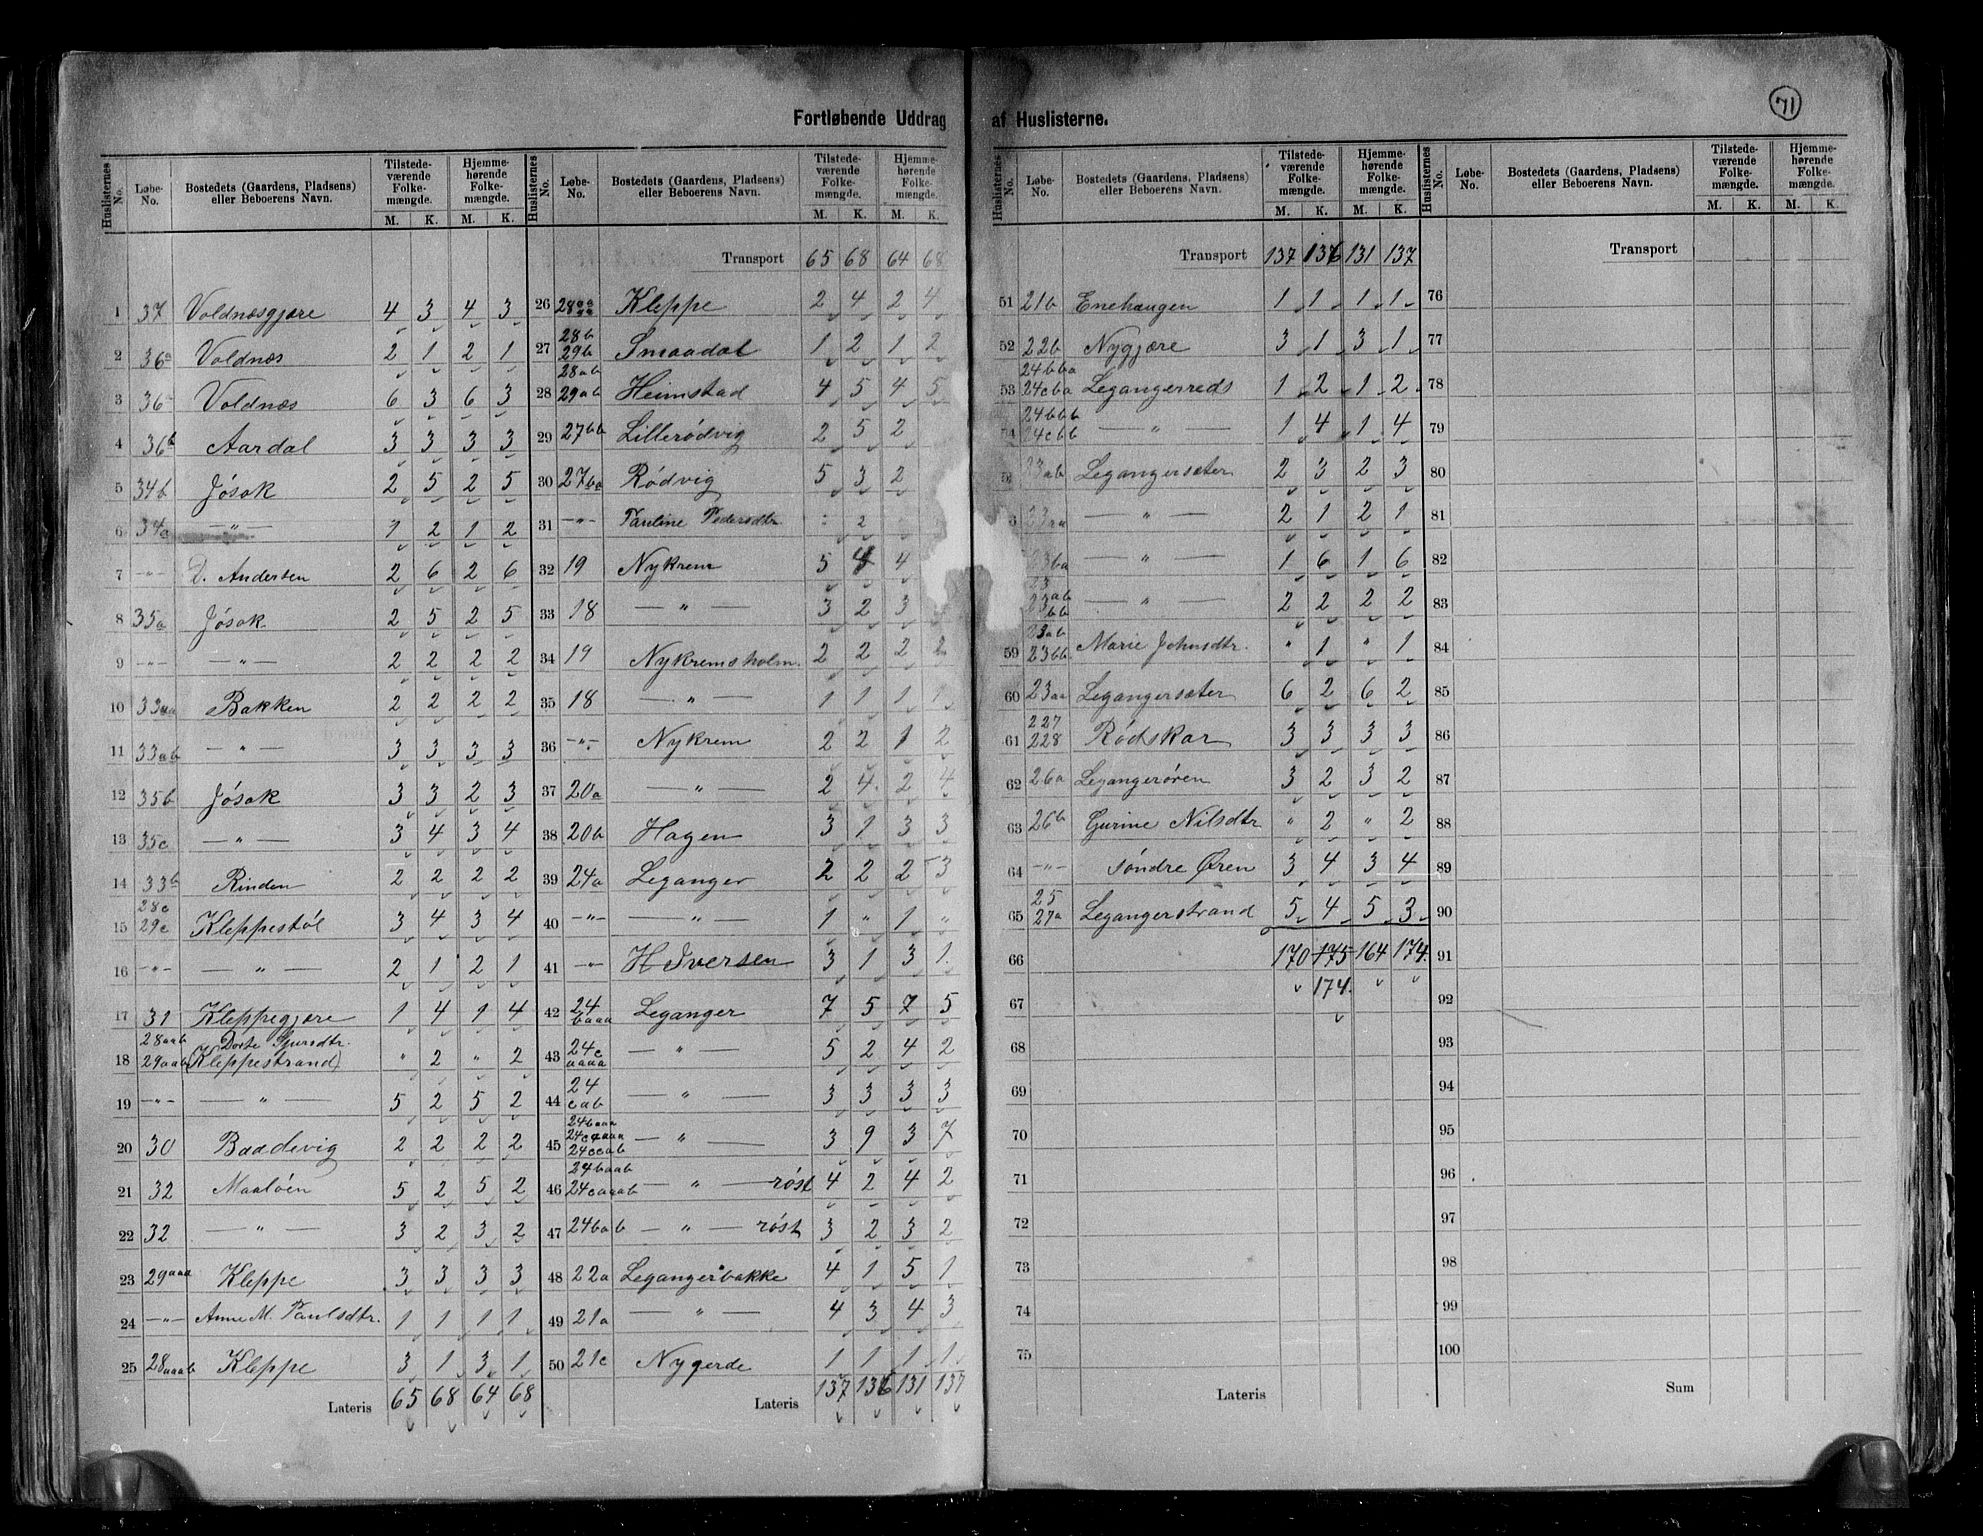 71
Fortløbende Uddrag af Huslisterne.
Huslisternes No. Løbe-No. Bostedets (Gaardens, Pladsens) eller Beboerens Navn. Tilstede-værende Folke-mængde. M. K. Hjemme-hørende Folke-mængde. M. K.
1 37 Voldnæsgjære 4 3 4 3
2 36a Voldnæs 2 1 2 1
3 36 Voldnæs 6 3 6 3
4 36b Aardal 3 3 3 3
5 34b Jøsok 2 5 2 5
6 34a — " — 1 2 1 2
7 -"- Andersen 2 6 2 6
8 35a Jøsok 2 5 2 5
9 -"- — " — 2 2 2 2
10 33aa Bakken 2 2 2 2
11 33ab — " — 3 3 3 3
12 35b Jøsok 3 3 2 3
13 35c — " — 3 4 3 4
14 33b Rinden 2 2 2 2
15 28c 29c Kleppestøl 3 4 3 4
16 -"- — " — 2 1 2 1
17 31 Kleppegjære 1 4 1 4
18 28aab 29aab Dorte Sjursdtr. (Kleppestrand) " 2 " 2
19 -"- — " — 5 2 5 2
20 30 Baadevig 2 2 2 2
21 32 Maaløen 5 2 5 2
22 32 — " — 3 2 3 2
23 29aaa Kleppe 3 3 3 3
24 -"- Anne M. Paulsdtr. 1 1 1 1
25 28aaab Kleppe 3 1 3 1
Lateris 65 68 64 68
Huslisternes No. Løbe-No. Bostedets (Gaardens, Pladsens) eller Beboerens Navn. Tilstede-værende Folke-mængde. M. K. Hjemme-hørende Folke-mængde. M. K.
Transport 65 68 64 68
26 28aa Kleppe 2 4 2 4
27 28b 29b Smaadal 1 2 1 2
28 28ab 29ab Heimstad 4 5 4 5
29 27bb Lillerødvig 2 5 2
30 27ba Rødvig 5 3 2
31 -"- Pauline Pedersdtr : 2
32 19 Nykrem 5 4 4
33 18 — " — 3 2 3
34 19 Nykremsholm. 2 2 2 2
35 18 — " — 1 1 1
36 -"- Nykrem 2 2 1 2
37 20a — " — 2 4 2 4
38 20b Hagen 3 1 3 3
39 24a Leganger 2 2 2 3
40 -"- — " — 1 " 1 "
41 -"- H Iversen 3 1 3 1
42 24 baaa Leganger 7 5 7 5
43 24c aaaa — " — 5 2 4 2
44 24 cab — " — 3 3 3 3
45 24baaa 24caaaa 24ccab — " — 3 9 3 7
46 24baab 24caaab — " — røst 4 2 4 2
47 24bab — " — røst 3 2 3 2
48 22a Legangerbakke 4 1 5 1
49 21a — " — 4 3 4 3
50 21c Nygerde 1 1 1 1
Lateris 137 136 131 137
Huslisternes No. Løbe-No. Bostedets (Gaardens, Pladsens) eller Beboerens Navn. Tilstede-værende Folke-mængde. M. K. Hjemme-hørende Folke-mængde. M. K.
Transport 137 136 131 137
51 21b Enehaugen 1 1 1 1
52 22b Nygjære 3 1 3 1
53 24bba 24cba Legangerreds 1 2 1 2
54 24bbb 24cbb — " — 1 4 1 4
23ab Legangersæter 2 3 2 3
23aa — " — 2 1 2 1
23ba — " — 1 6 1 6
23 23ab bb — " — 2 2 2 2
59 23ab 23bb Marie Johnsdtr. " 1 " 1
60 23aa Legangersæter 6 2 6 2
61 227 228 Rødskar 3 3 3 3
62 26a Legangerøren 3 2 3 2
63 26b Gurine Nilsdtr " 2 " 2
64 -"- Søndre Øren 3 4 3 4
65 25 27a Legangerstrand 5 4 5 3
66 170 175 164 174.
67 174.
68
69
70
71
72
73
74
75
Lateris
Huslisternes No. Løbe-No. Bostedets (Gaardens, Pladsens) eller Beboerens Navn. Tilstede-værende Folke-mængde. M. K. Hjemme-hørende Folke-mængde. M. K.
Transport
76
77
78
79
80
81
82
83
84
85
86
87
88
89
90
91
92
93
94
95
96
97
98
99
100
Sum